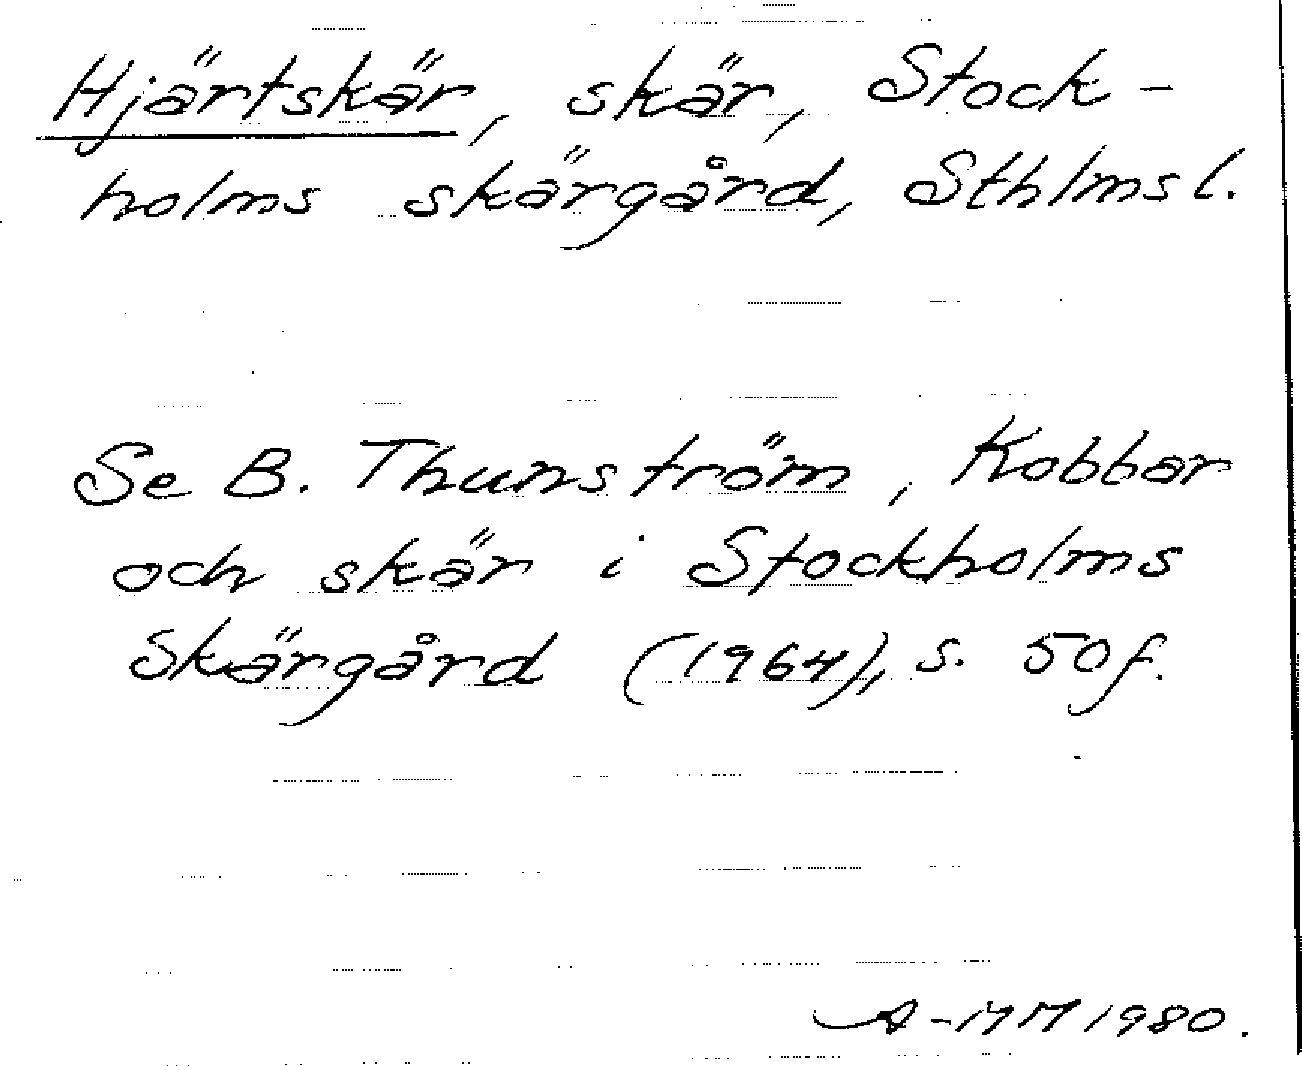 Hjärtskär, skär, Stock-
holms skärgård, Sthlms l.
Se B. Thunström, Kobbar
och skär i Stockholms
Skärgård (1964), s. 50f.
A-MM 1980.